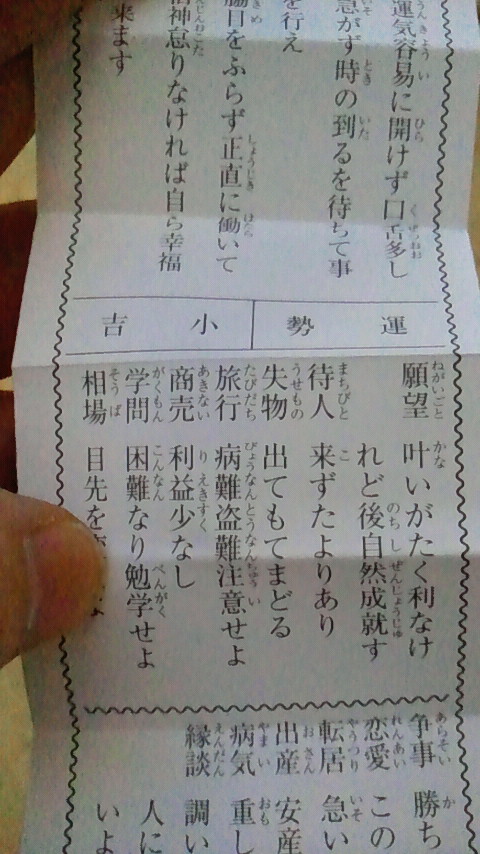 運気容易に開けず口舌多し
急がず時の到るを待ちて事
を行え
脇目をふらず正直に働いて
神怠りなければ自ら幸福
来ます
運勢 小吉
願望 叶いがたく利なけ
れど後自然成就す
待人 来ずたよりあり
失物 出てもてまどる
旅行 病難盗難注意せよ
商売 利益少なし
学問 困難なり勉学せよ
相場 目先を
争事 勝ち
恋愛 この
転居 急い
出産 安産
病気 重し
縁談 調い
人に
いよ